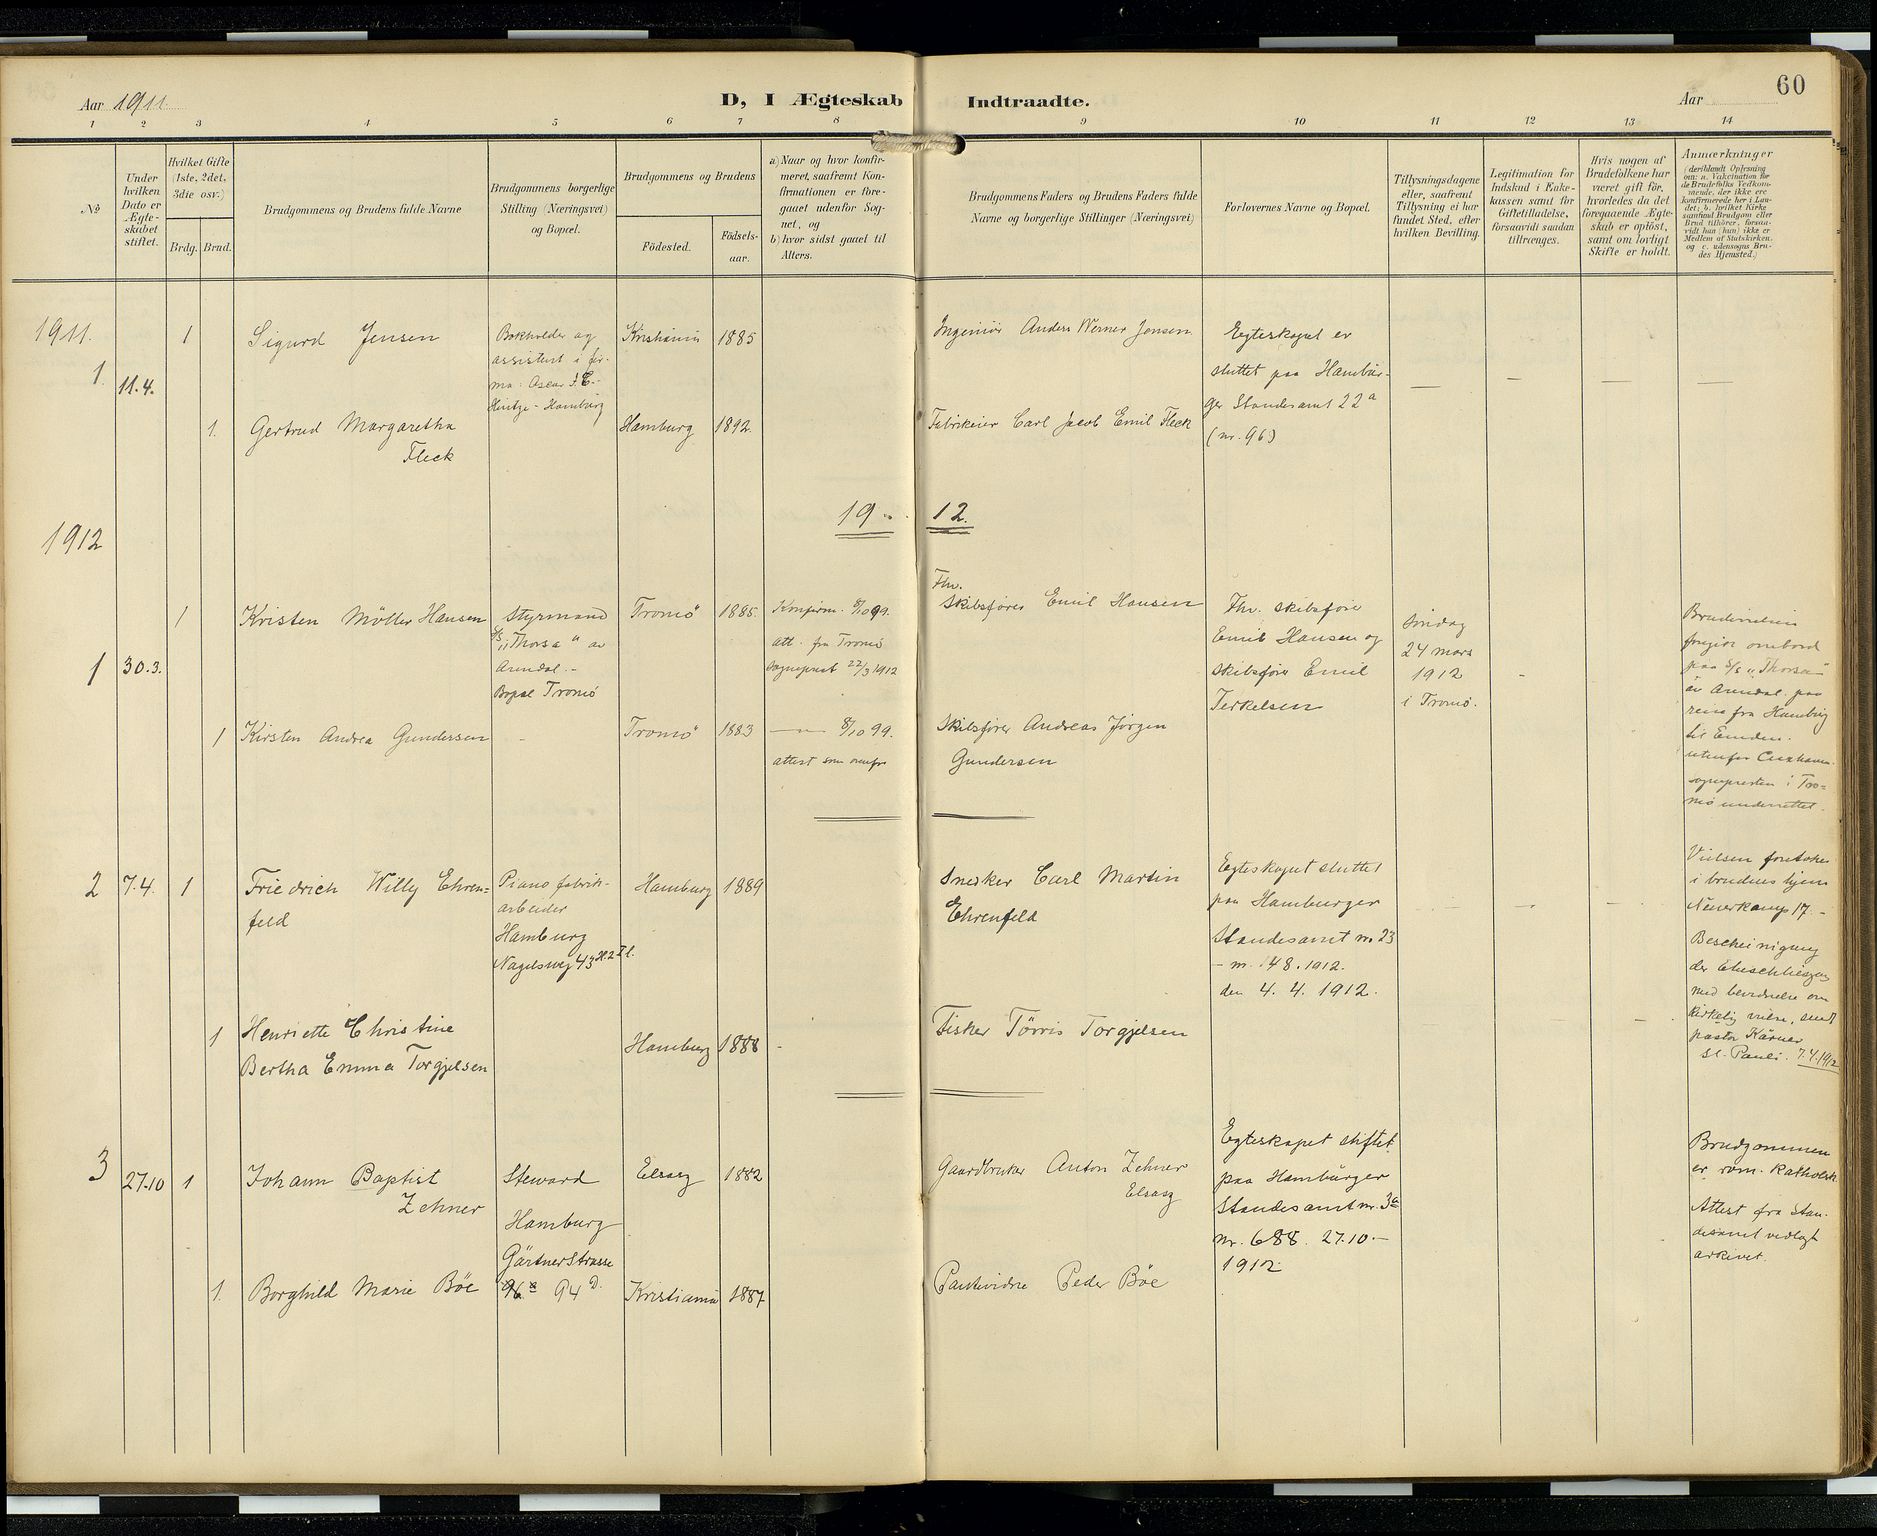 60
Aar 1911
D, I Ægteskab Indtraadte.
Aar
1 2 3 4 5 6 7 8 9 10 11 12 13 14
№
Under
hvilken
Dato er
Ægte-
skabet
stiftet.
Hvilket Gifte
(1ste, 2det,
3die osv.)
Brdg. Brud.
Brudgommens og Brudens fulde Navne
Brudgommens borgerlige
Stilling (Næringsvei)
og Bopæl.
Brudgommens og Brudens
Födested.
Födsels-
aar.
a) Naar og hvor konfir-
meret, saafremt Kon-
firmationen er fore-
gaaet udenfor Sog-
net, og
b) hvor sidst gaaet til
Alters.
Brudgommens Faders og Brudens Faders fulde
Navne og borgerlige Stillinger (Næringsvei)
Forlovernes Navne og Bopæl.
Tillysningsdagene
eller, saafremt
Tillysning ei har
fundet Sted, efter
hvilken Bevilling.
Legitimation for
Indskud i Enke-
kassen samt for
Giftetilladelse,
forsaavidt saadan
tiltrænges.
Hvis nogen af
Brudefolkene har
været gift för,
hvorledes da det
foregaaende Ægte-
skab er oplöst,
samt om lovligt
Skifte er holdt.
Anmærkninger
(deriblandt Oplysning
om: a. Vakcination for
de Brudefolks Vedkom-
mende, der ikke ere
konfirmerede her i Lan-
det; b. hvilket Kirke
samfund Brudgom eller
Brud tilhörer, forsaa-
vidt han (hun) ikke er
Medlem af Statskirken,
og c. udensogns Bru-
des Hjemsted.)
1911.
1. 11.4.
1
Sigurd Jensen
Bokholder og
assistent i fir-
ma: Oscar
Hintze - Hamburg
Kristiania 1885
Ingeniör Anders Werner Jensen
Egteskapet er
sluttet paa Hambur-
ger Standesamt 22a
(nr. 96)
1. Gertrud Margaretha
Fleck
Hamburg 1892.
Fabrikeier Carl Jacob Emil Fleck
1912
19 - 12.
1 30.3.
1
Kristen Möller Hansen
Styrmand
S/s "Thorsa" av
Arendal. -
Bopæl Tromö
Tromö 1885.
Konfirm. 8/10 99.
att. fra Tromö
sogneprest 22/3 1912
Fhv.
Skibsförer Emil Hansen
Fhv. skibsförer
Emil Hansen og
skibsförer Emil
Terkelsen
Söndag
24 mars
1912
i Tromö.
Brudevielsen
foregik ombord
paa S/s "Thorsa"
av Arendal paa
reise fra Hamburg
til Emden.
utenfor Cuxhaven.
sognepresten i Tro-
mö underrettet.
1 Kirsten Andrea Gundersen
Tromö 1883
8/10 99.
attest som ovenfor
Skibsförer Andreas Jörgen
Gundersen
2 7.4. 1
Friedrich Willy Ehren-
feld
Pianofabrik-
arbeider
Hamburg
Nagelsweg 43
Hamburg 1889
Snedker Carl Martin
Ehrenfeld
Egteskapet sluttet
paa Hamburger
Standesamt nr 23
- nr. 148. 1912.
den 4. 4. 1912.
Vielsen foretoges
i brudens hjem
Neuerkamp 17. -
Bescheinigung
der Eheschliessung
med bevidnelse om
kirkelig vielse, sendt
pastor Kärner
St. Pauli. 7.4.1912
1 Henriette Christine
Bertha Emma Torgjelsen
Hamburg 1888
Fisker Törris Torgjelsen
3 27.10 1
Johann Baptist
Zehner
Steward
Hamburg
Gärtnerstrasse
96a 94 D.
Elsasz 1882
Gaardbruker Anton Zehner
Elsasz
Egteskapet stiftet
paa Hamburger
Standesamt nr. 3a
nr. 688. 27.10. -
1912.
Brudgommen
er rom. katholsk
Attest fra Stan-
desamt vedlagt
arkivet.
1. Borghild Marie Böe
Kristiania 1887
Peder Böe